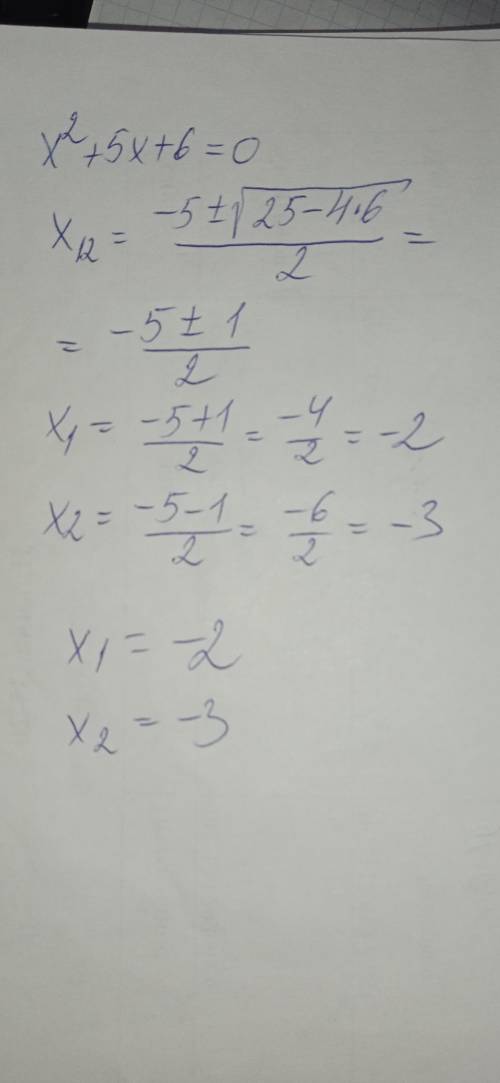 x² + 5x + 6 = 0
x₁₂ = (-5 ± √(25 - 4·6))/2 =
= (-5 ± 1)/2
x₁ = (-5+1)/2 = -4/2 = -2
x₂ = (-5-1)/2 = -6/2 = -3
x₁ = -2
x₂ = -3